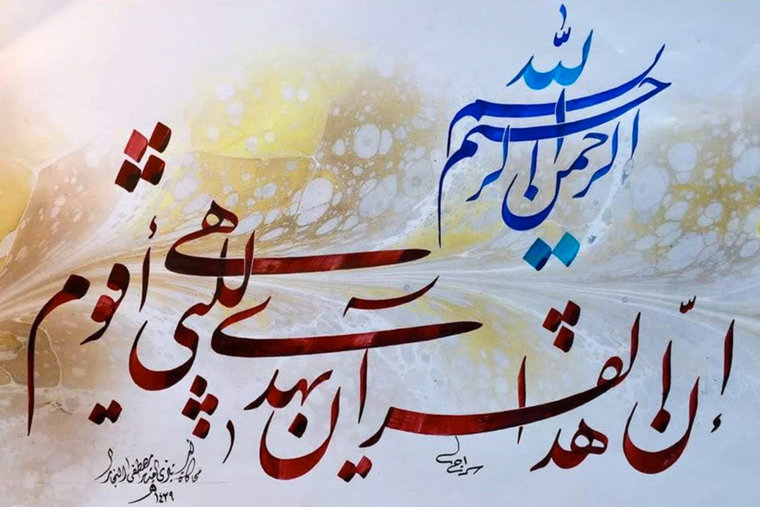 بسم الله الرحمن الرحيم
إنّ هذا القرآن يهدي للتي هي أقوم
١٤٢٩هـ